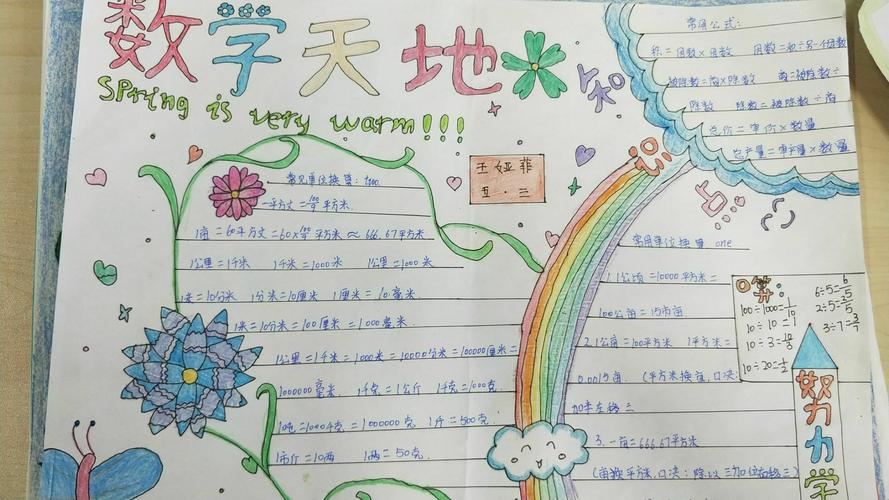 数学天地
Spring is very warm!!!
知
识
点
王娅菲
五·三
常用公式:
积=因数×因数 因数=积÷另一个因数
被除数=商×除数 商=被除数÷
除数 除数=被除数÷商
总价=单价×数量
总产量=单产量×数量
常见单位换算: two
一平方丈=100/9平方米.
1亩=60平方丈=60×100/9平方米≈666.67平方米
1公里=1千米 1千米=1000米 1公里=1000米
1米=10分米 1分米=10厘米 1厘米=10毫米
1米=10分米=100厘米=1000毫米
1公里=1千米=1000米=10000分米=100000厘米=
1000000毫米. 1千克=1公斤 1千克=1000克
1吨=1000千克=1000000克 1斤=500克
1市斤=10两 1两=50克.
常用单位换算 one
1.1公顷=10000平方米=
100公亩=15市亩
2.1公亩=100平方米 1平方米=
0.0015亩. (平方米换亩,口决:
加半左移三
3.一亩=666.67平方米
(亩换平方米,口决:除以三加位右移三)
口算:
100÷1000=1/10
10÷10=1
10÷3=10/3
10÷20=1/2
6÷5=6/5
2÷5=2/5
3÷7=3/7
努力学